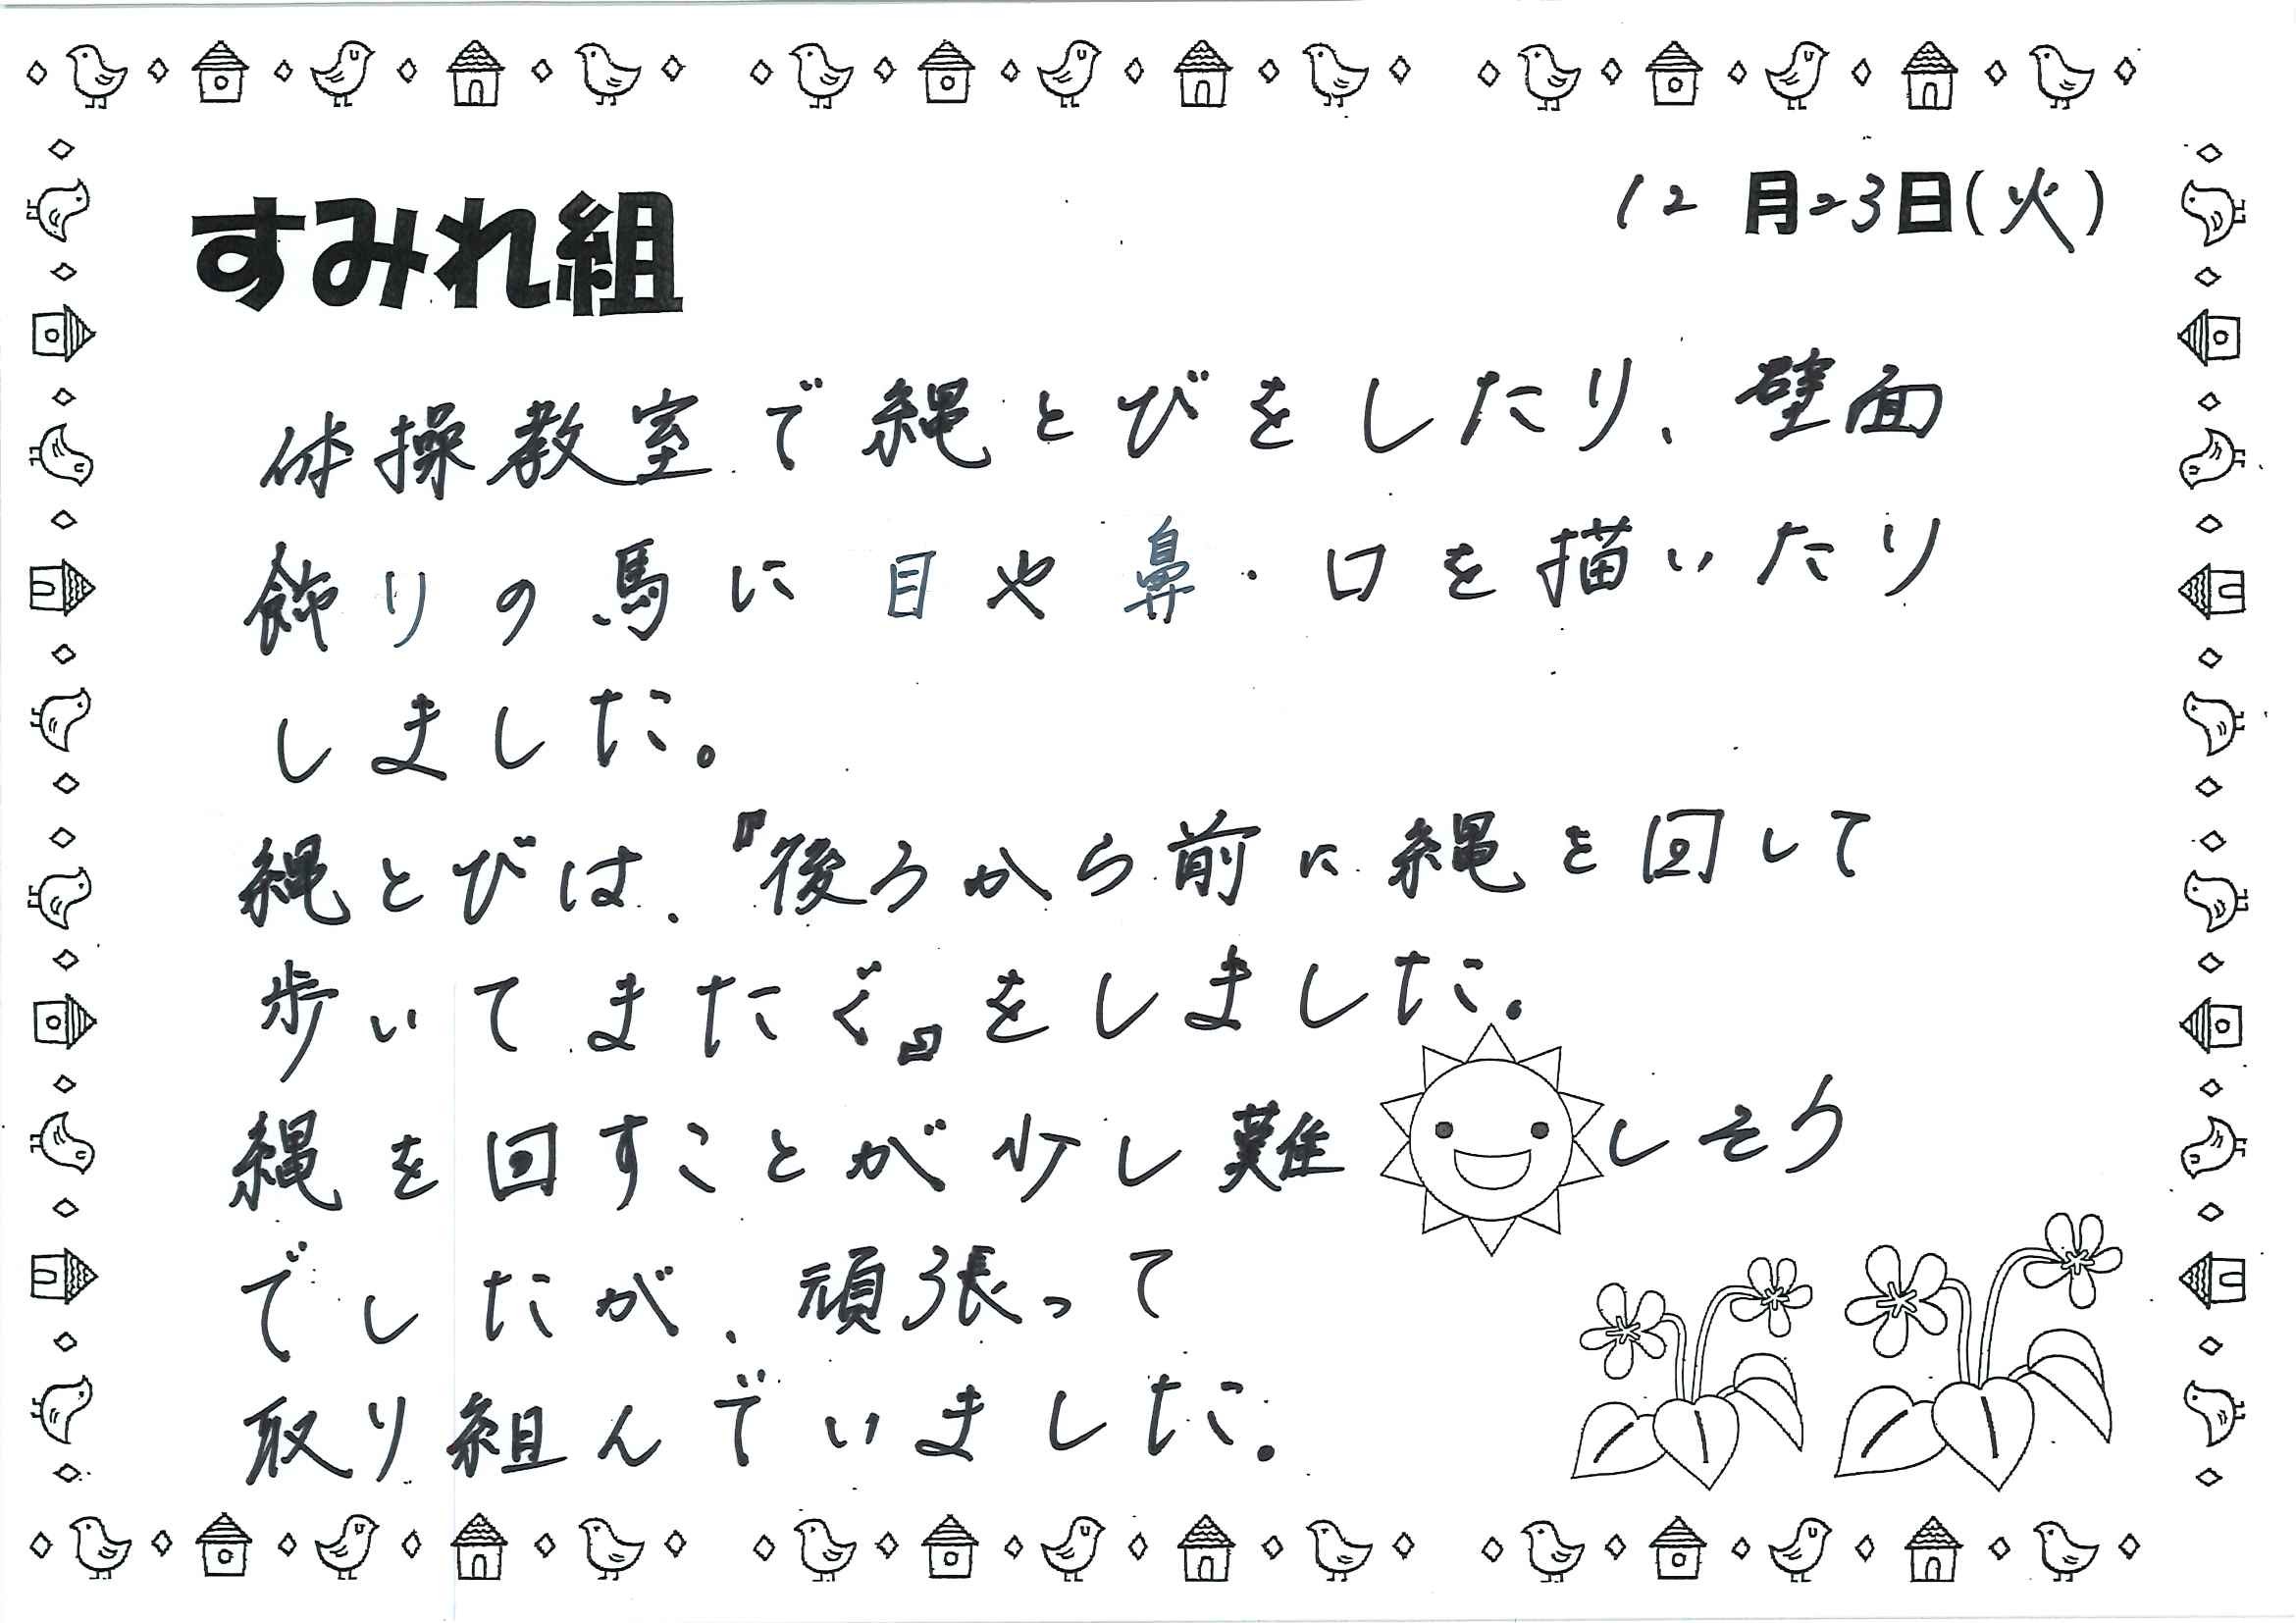 すみれ組
12月23日(火)
体操教室で縄とびをしたり、壁面
飾りの馬に目や鼻・口を描いたり
しました。
縄とびは、『後ろから前に縄を回して
歩いてまたぐ』をしました。
縄を回すことが少し難しそう
でしたが、頑張って
取り組んでいました。